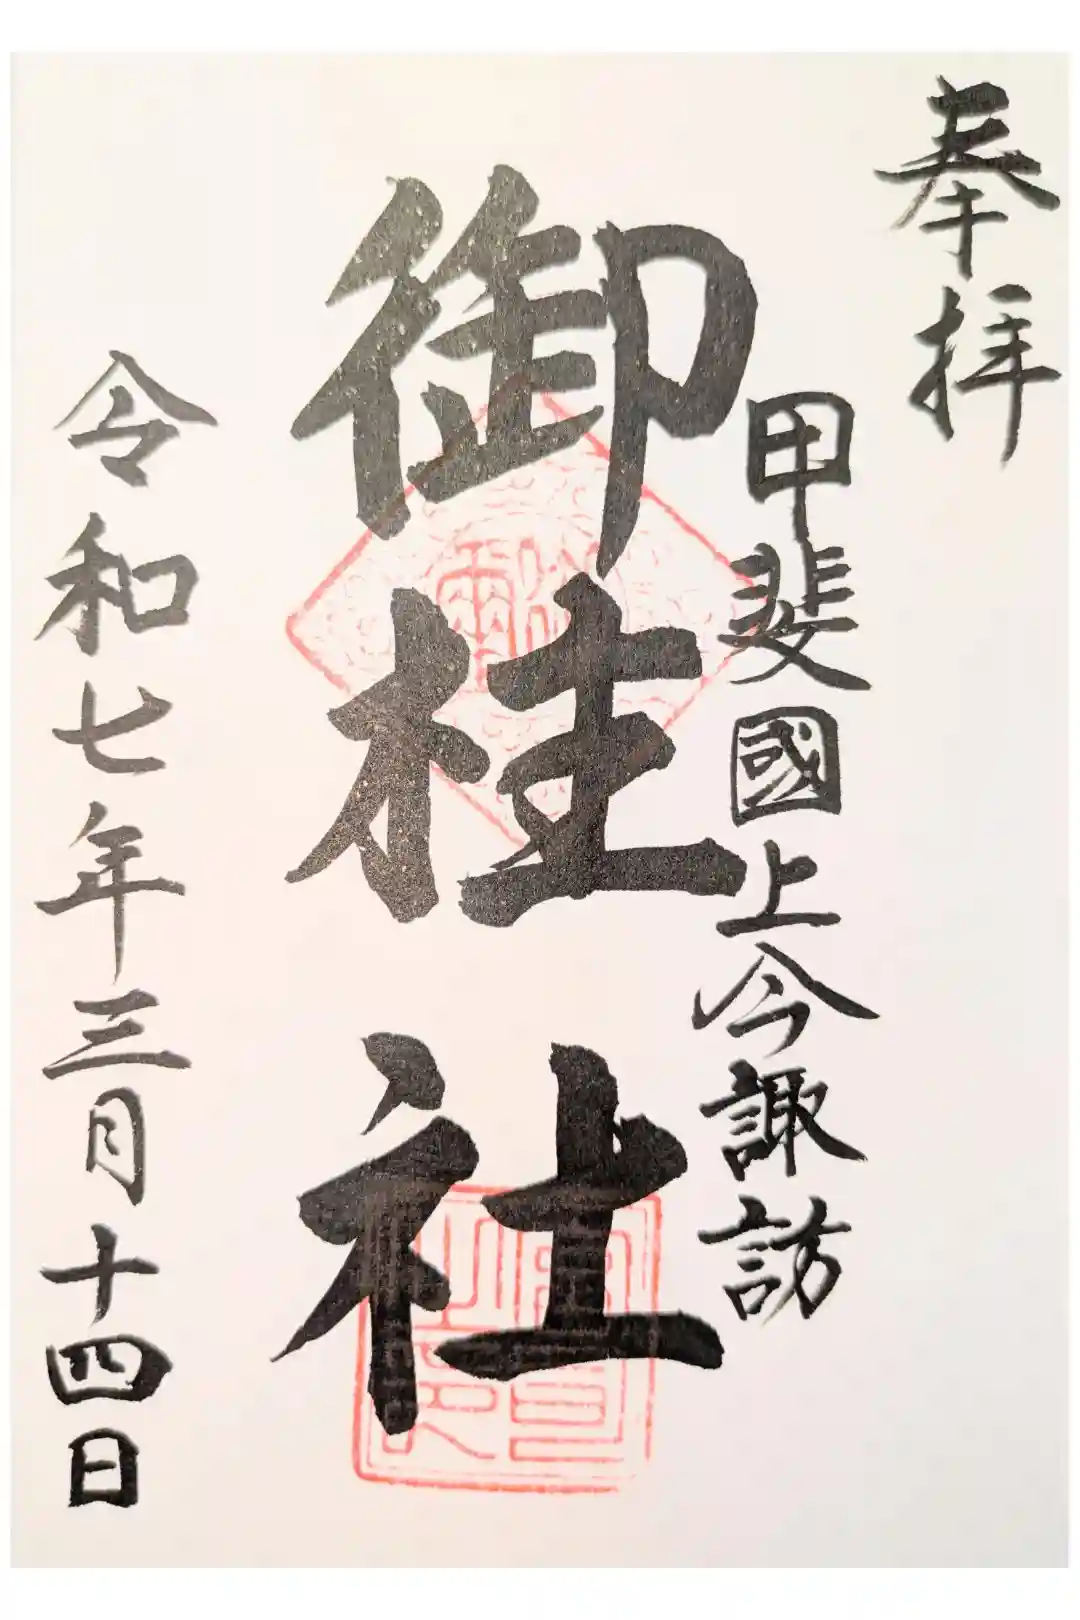 奉拝
甲斐國上今諏訪
御柱社
令和七年三月十四日